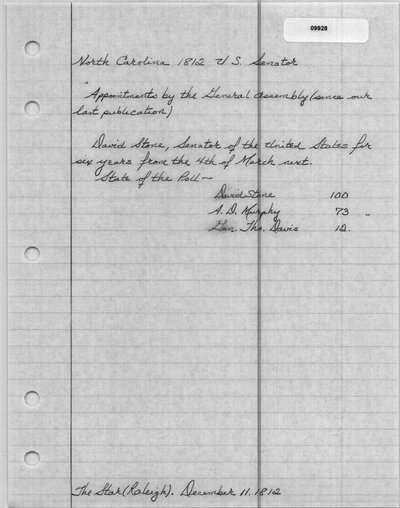 09928
North Carolina 1812 U.S. Senator
"Appointments by the General Assembly (since our
last publication)
David Stone, Senator of the United States for
six years from the 4th of March next.
State of the Poll —
David Stone 100
A. D. Murphy 73 "
Gen. Tho. Davis 12.
The Star (Raleigh). December 11. 1812